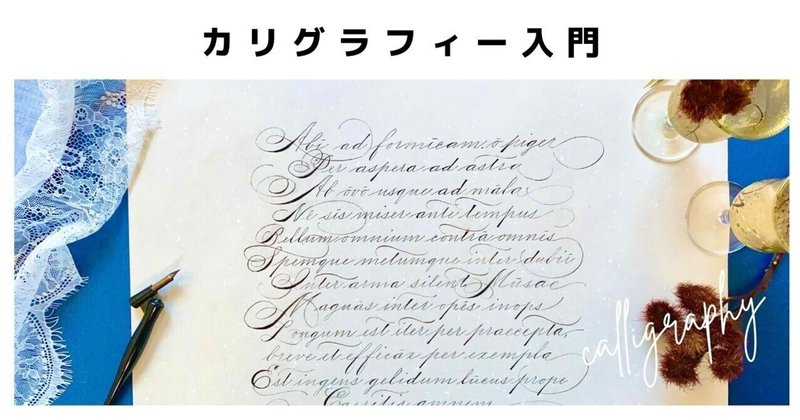 カリグラフィー入門
Abi ad formīcam, ō piger
Per aspera ad astra
Ab ōvō usque ad māla
Nē sīs miser ante tempus
Bellum omnium contrā omnēs
Spemque metumque inter dubiī
Inter arma silent Mūsae
Magnās inter opēs inops
Longum est iter per praecepta,
breve et efficāx per exempla
Est ingēns gelidum lūcus prope
Caeritis amnem
calligraphy